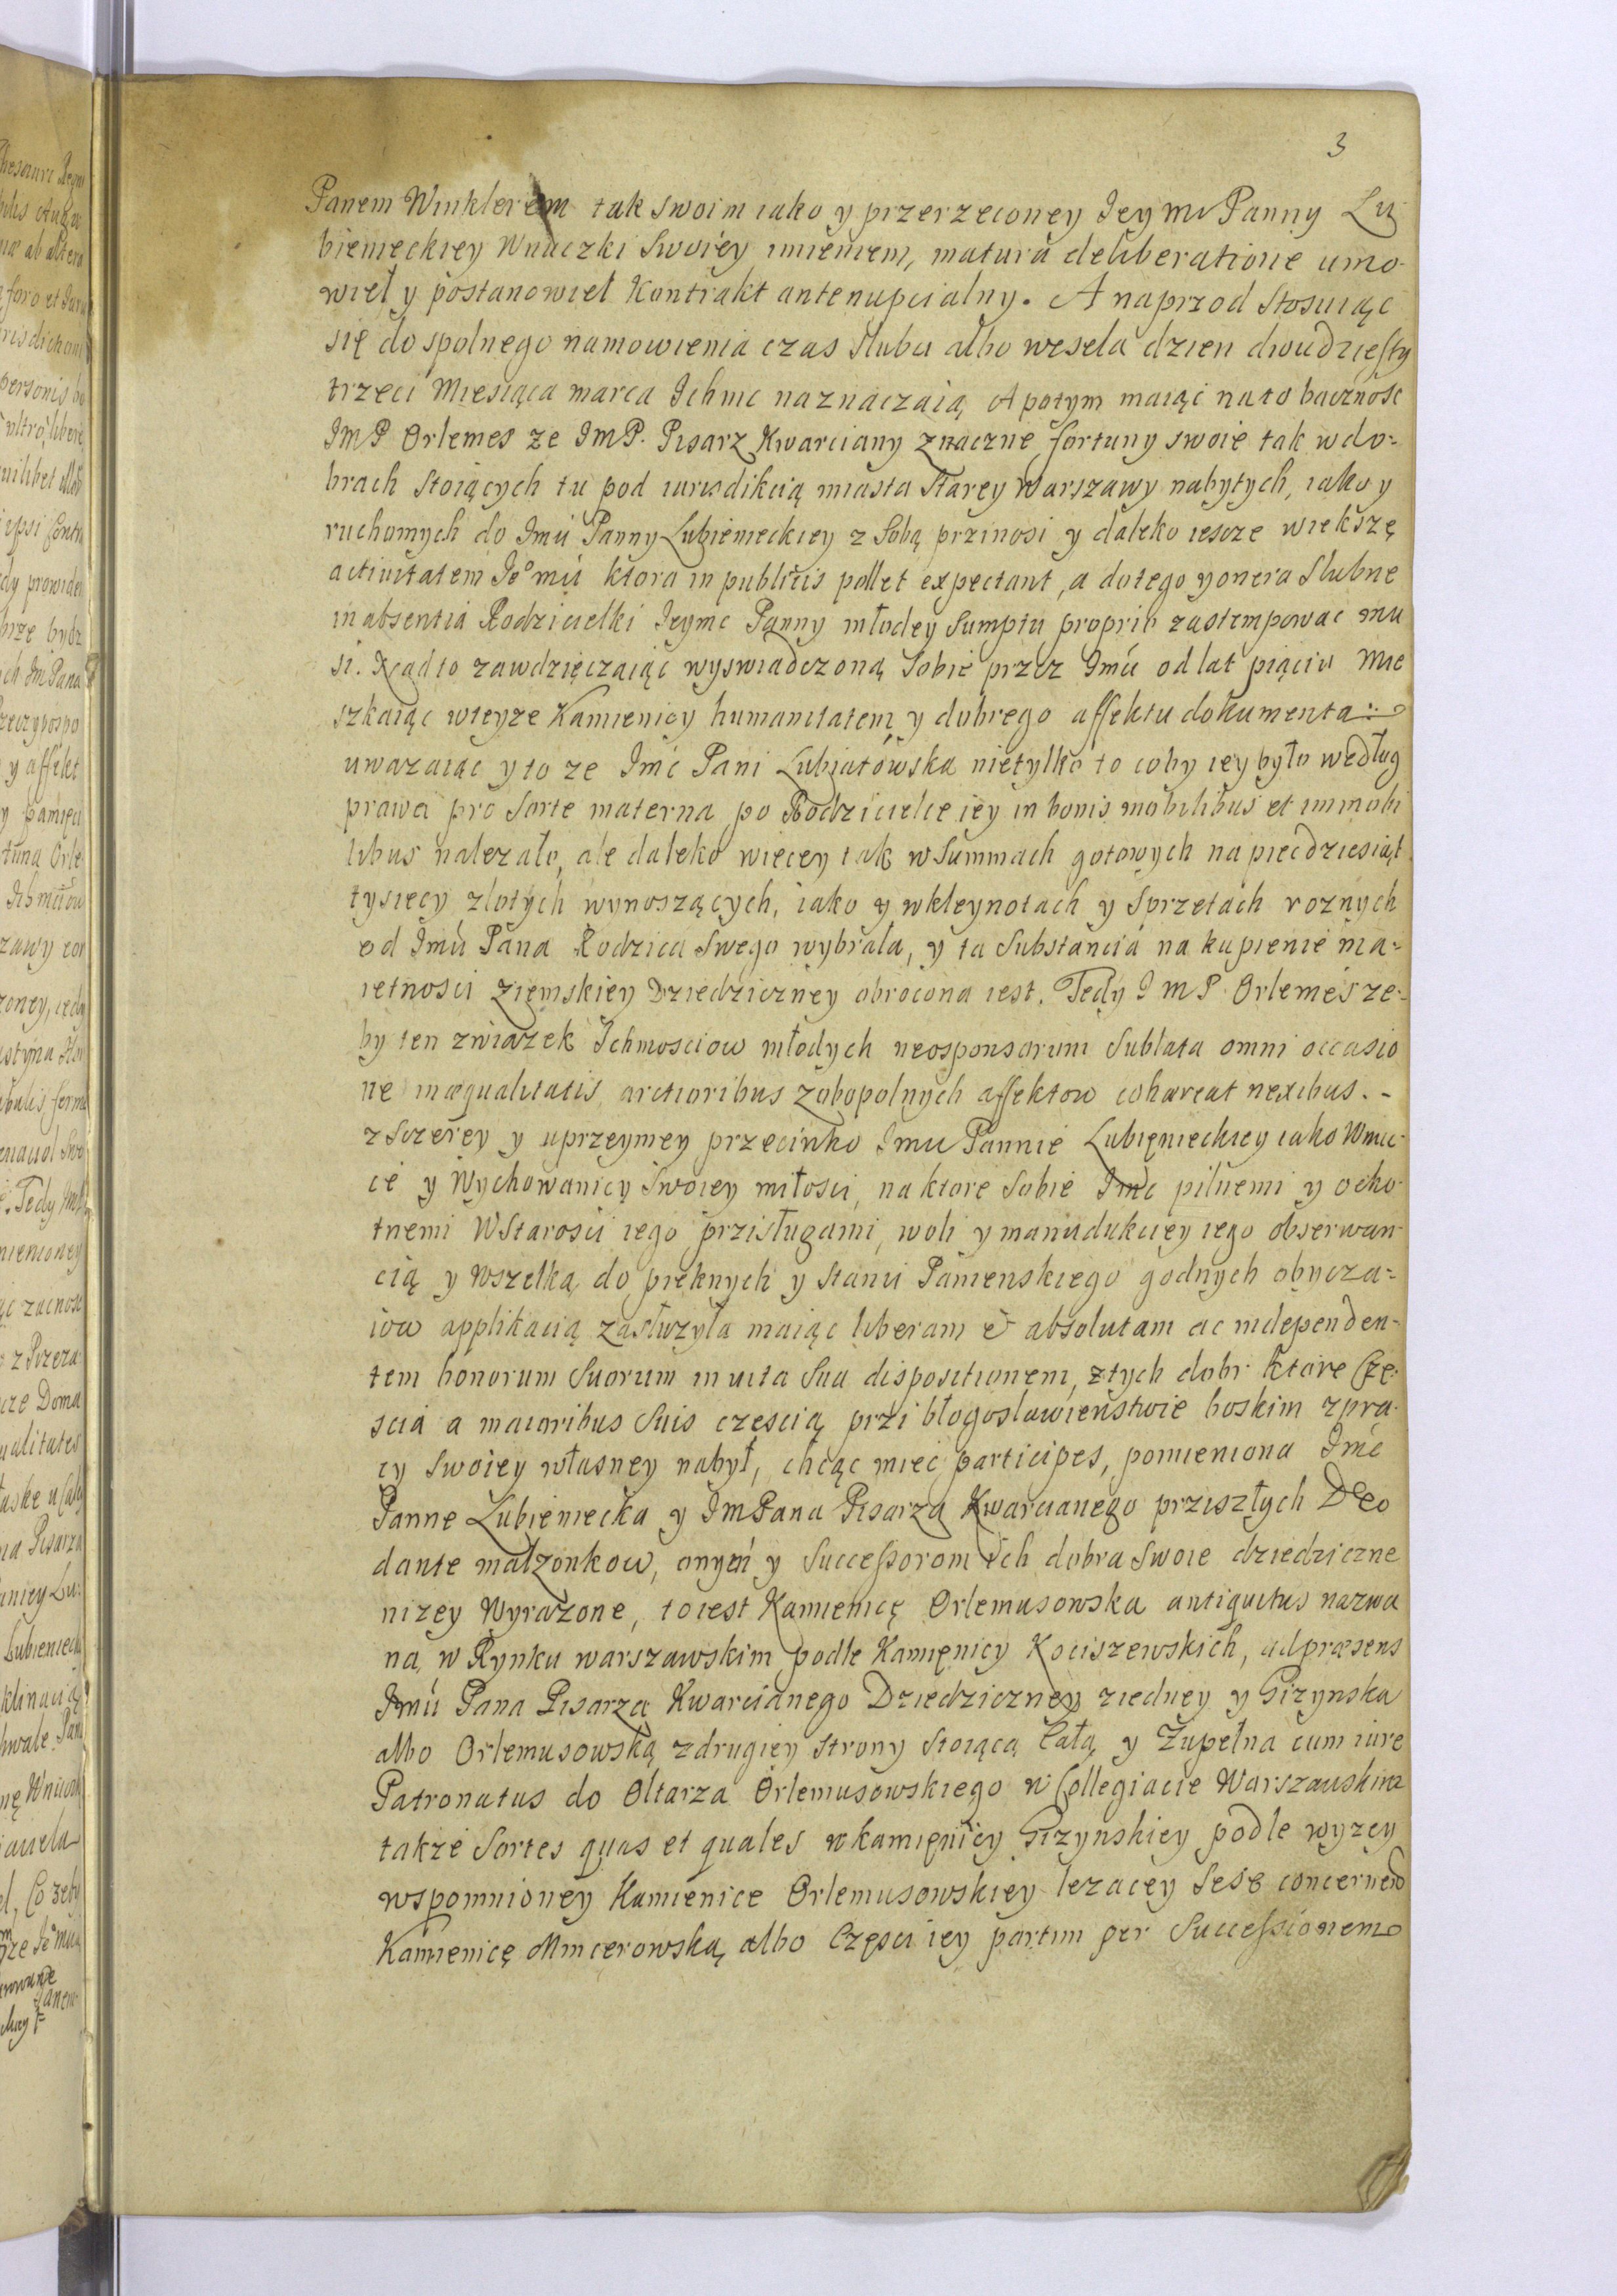 3
Panem Winklerem tak swoim iako y przerzeconey Jey Mc Panny Lu
bienieckiey Wnuczki Swoiey imieniem, matura deliberatione umo-
wieł y postanowieł Kontrakt antenupcialny. A naprzod Stosuiąc
się do spolnego namowienia czas slubu albo wesela dzien dwudziesty
trzeci Miesiąca marca Ichmc naznaczaią A potym maiąc na to bacznosc
JmP Orlemes ze JmP. Pisarz Kwarciany znaczne fortuny swoie tak w do-
brach stoiących tu pod iurisdikcią miasta Starey Warszawy nabytych, iako y
ruchomych do Jmú Panny Lubienieckiey z Sobą przinosi y daleko iescze wiekszę
activitatem Jeº mú ktora in publicis pollet expectant, a do tego y onera Slubne
in absentia Rodzicielki Jeymc Panny młodey Sumptu proprio zastempowac mu
si. Nad to zawdzięczaiąc wyswiadczoną Sobie przez Jmú od lat piąciu Mie
szkaiąc wteyze Kamienicy humanitatem y dobrego affektu dokumenta
uwazaiąc y to ze Jmć Pani Lubiatowska nietylko to coby iey było według
prawa pro Sorte materna po Rodzicielce iey in bonis mobilibus et immobi
libus nalezało, ale daleko wiecey tak w Summach gotowych na piecdziesiąt
tysiecy złotych wynoszących, iako y wkleynotach y Sprzetach roznych
od Jmú Pana Rodzica Swego wybrała, y ta Substancia na kupienie ma-
ietnosci ziemskiey Dziedziczney obrocona iest. Tedy J m P Orlemes ze-
by ten zwiazek Ichmosciow młodych neosponsorum Sublata omni occasio
ne inæqualitatis arctioribus zobopolnych affektow cohæreat nexibus. -
z Sczerey y uprzeymey przeciwko Jmu Pannie Lubienieckiey iako Wnu-
ce y Wychowanicy Swoiey miłosci, na ktore Sobie Jmc pilnemi y ocho-
tnemi W Starosci iego przisługami, woli y manudukciey iego obserwan-
cią y wszelką do pieknych y stanu Panienskiego godnych obycza-
iow applikacią zasłuzyła maiąc liberam et absolutam ac independen-
tem bonorum Suorum in vita Sua dispositionem, z tych dobr ktore Cze-
scia a maioribus Suis częscią przi błogosławienstwie boskim z pra-
cy Swoiey własney nabył, chcąc miec participes, pomieniona Jmc
Panne Lubieniecka y JmPana Pisarza Kwarcianego przyszłych Deo
dante małzonkow, onym y Successorom ich dobra Swoie dziedziczne
nizey Wyrazone, to iest Kamienicę Orlemusowska antiquitus nazwa
na, w Rynku warszawskim podle Kamienicy Kociszewskich, ad præsens
Jmú Pana Pisarza Kwarcianego Dziedziczney ziedney y Gizynska
albo Orlemusowską z drugiey strony stoiącą Całą y Zupełna cum iure
Patronatus do Oltarza Orlemusowskiego w Collegiacie Warszawskim
takze Sortes quas et quales w kamienicy Gizynskiey podle wyzey
wspomnioney Kamienice Orlemusowskiey lezacey Sese concernen
Kamienicę Mincerowską albo Częsci iey partim per Successionem